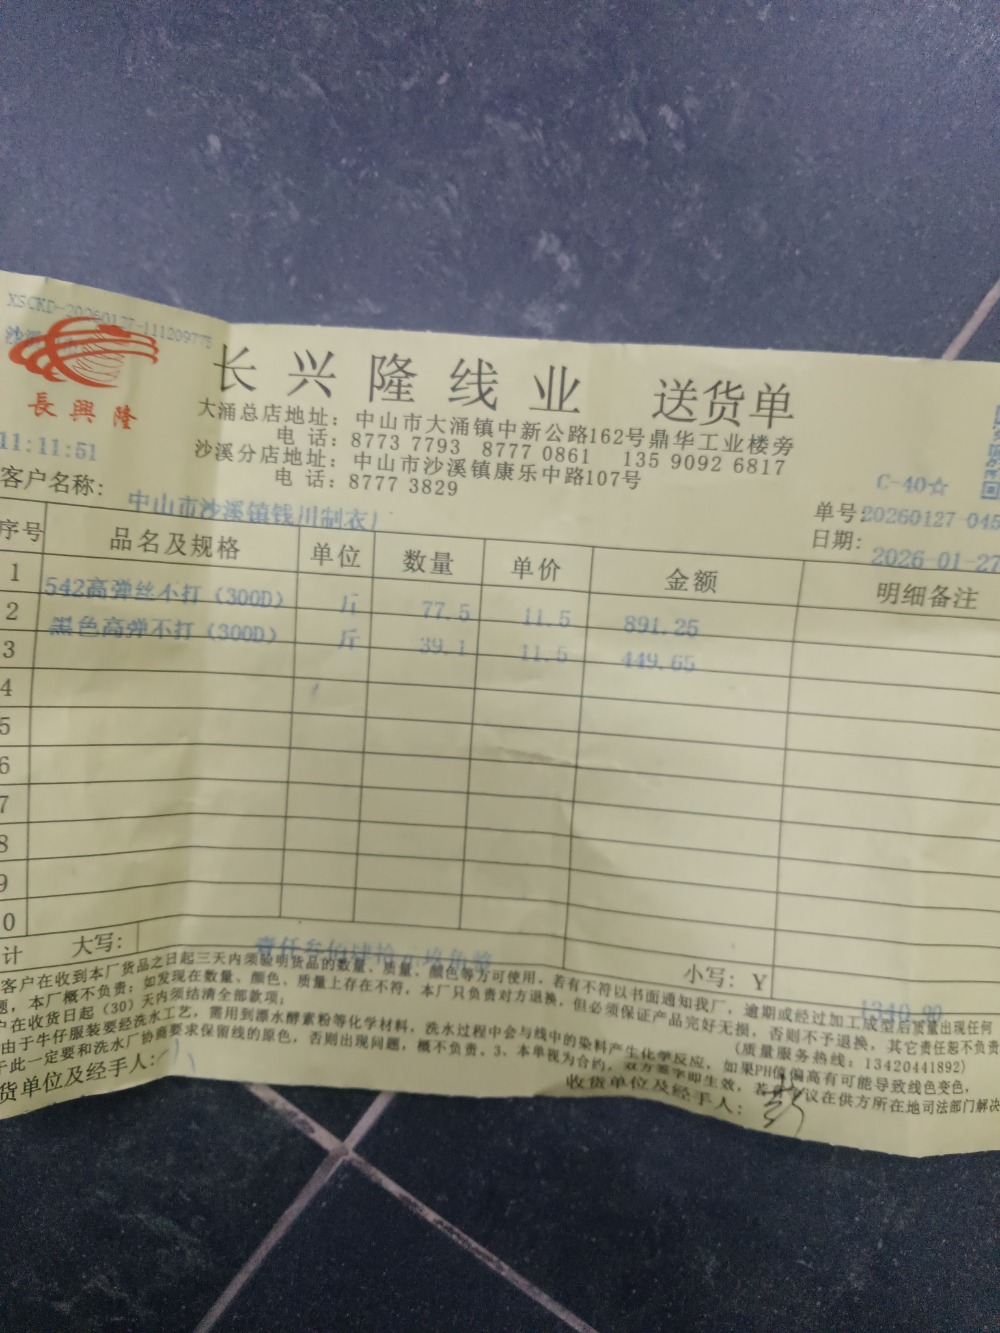 XSCKD-20260127-111209775
長興隆
长兴隆线业 送货单
大涌总店地址：中山市大涌镇中新公路162号鼎华工业楼旁
电 话：8773 7793 8777 0861 135 9092 6817
沙溪分店地址：中山市沙溪镇康乐中路107号
电 话：8777 3829
11:11:51
C-40☆
客户名称：
中山市沙溪镇钱川制衣厂
单号：20260127-045
日期：2026-01-27
序号 品名及规格 单位 数量 单价 金额 明细备注
1 542高弹丝不打（300D） 斤 77.5 11.5 891.25
2 黑色高弹不打（300D） 斤 39.1 11.5 449.65
3
4
5
6
7
8
9
0
计 大写： 壹仟叁佰肆拾 玖角 小写：Y 1340.90
客户在收到本厂货品之日起三天内须验明货品的数量、质量、颜色等方可使用，若有不符以书面通知我厂，逾期或经过加工成型后质量出现任何
题，本厂概不负责；如发现在数量、颜色、质量上存在不符，本厂只负责对方退换，但必须保证产品完好无损，否则不予退换，其它责任恕不负责
户在收货日起（30）天内须结清全部款项； (质量服务热线：13420441892)
由于牛仔服装要经洗水工艺，需用到漂水酵素粉等化学材料，洗水过程中会与线中的染料产生化学反应，如果PH值偏高有可能导致线色变色，
于此一定要和洗水厂协商要求保留线的原色，否则出现问题，概不负责。3、本单视为合约，双方签字即生效，若有 议在供方所在地司法部门解决
货单位及经手人： 收货单位及经手人：